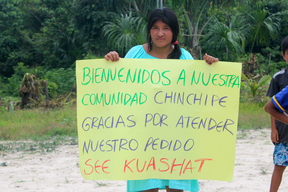 BIENVENIDOS A NUESTRA
COMUNIDAD CHINCHIPE
GRACIAS POR ATENDER
NUESTRO PEDIDO
SEE KUASHAT